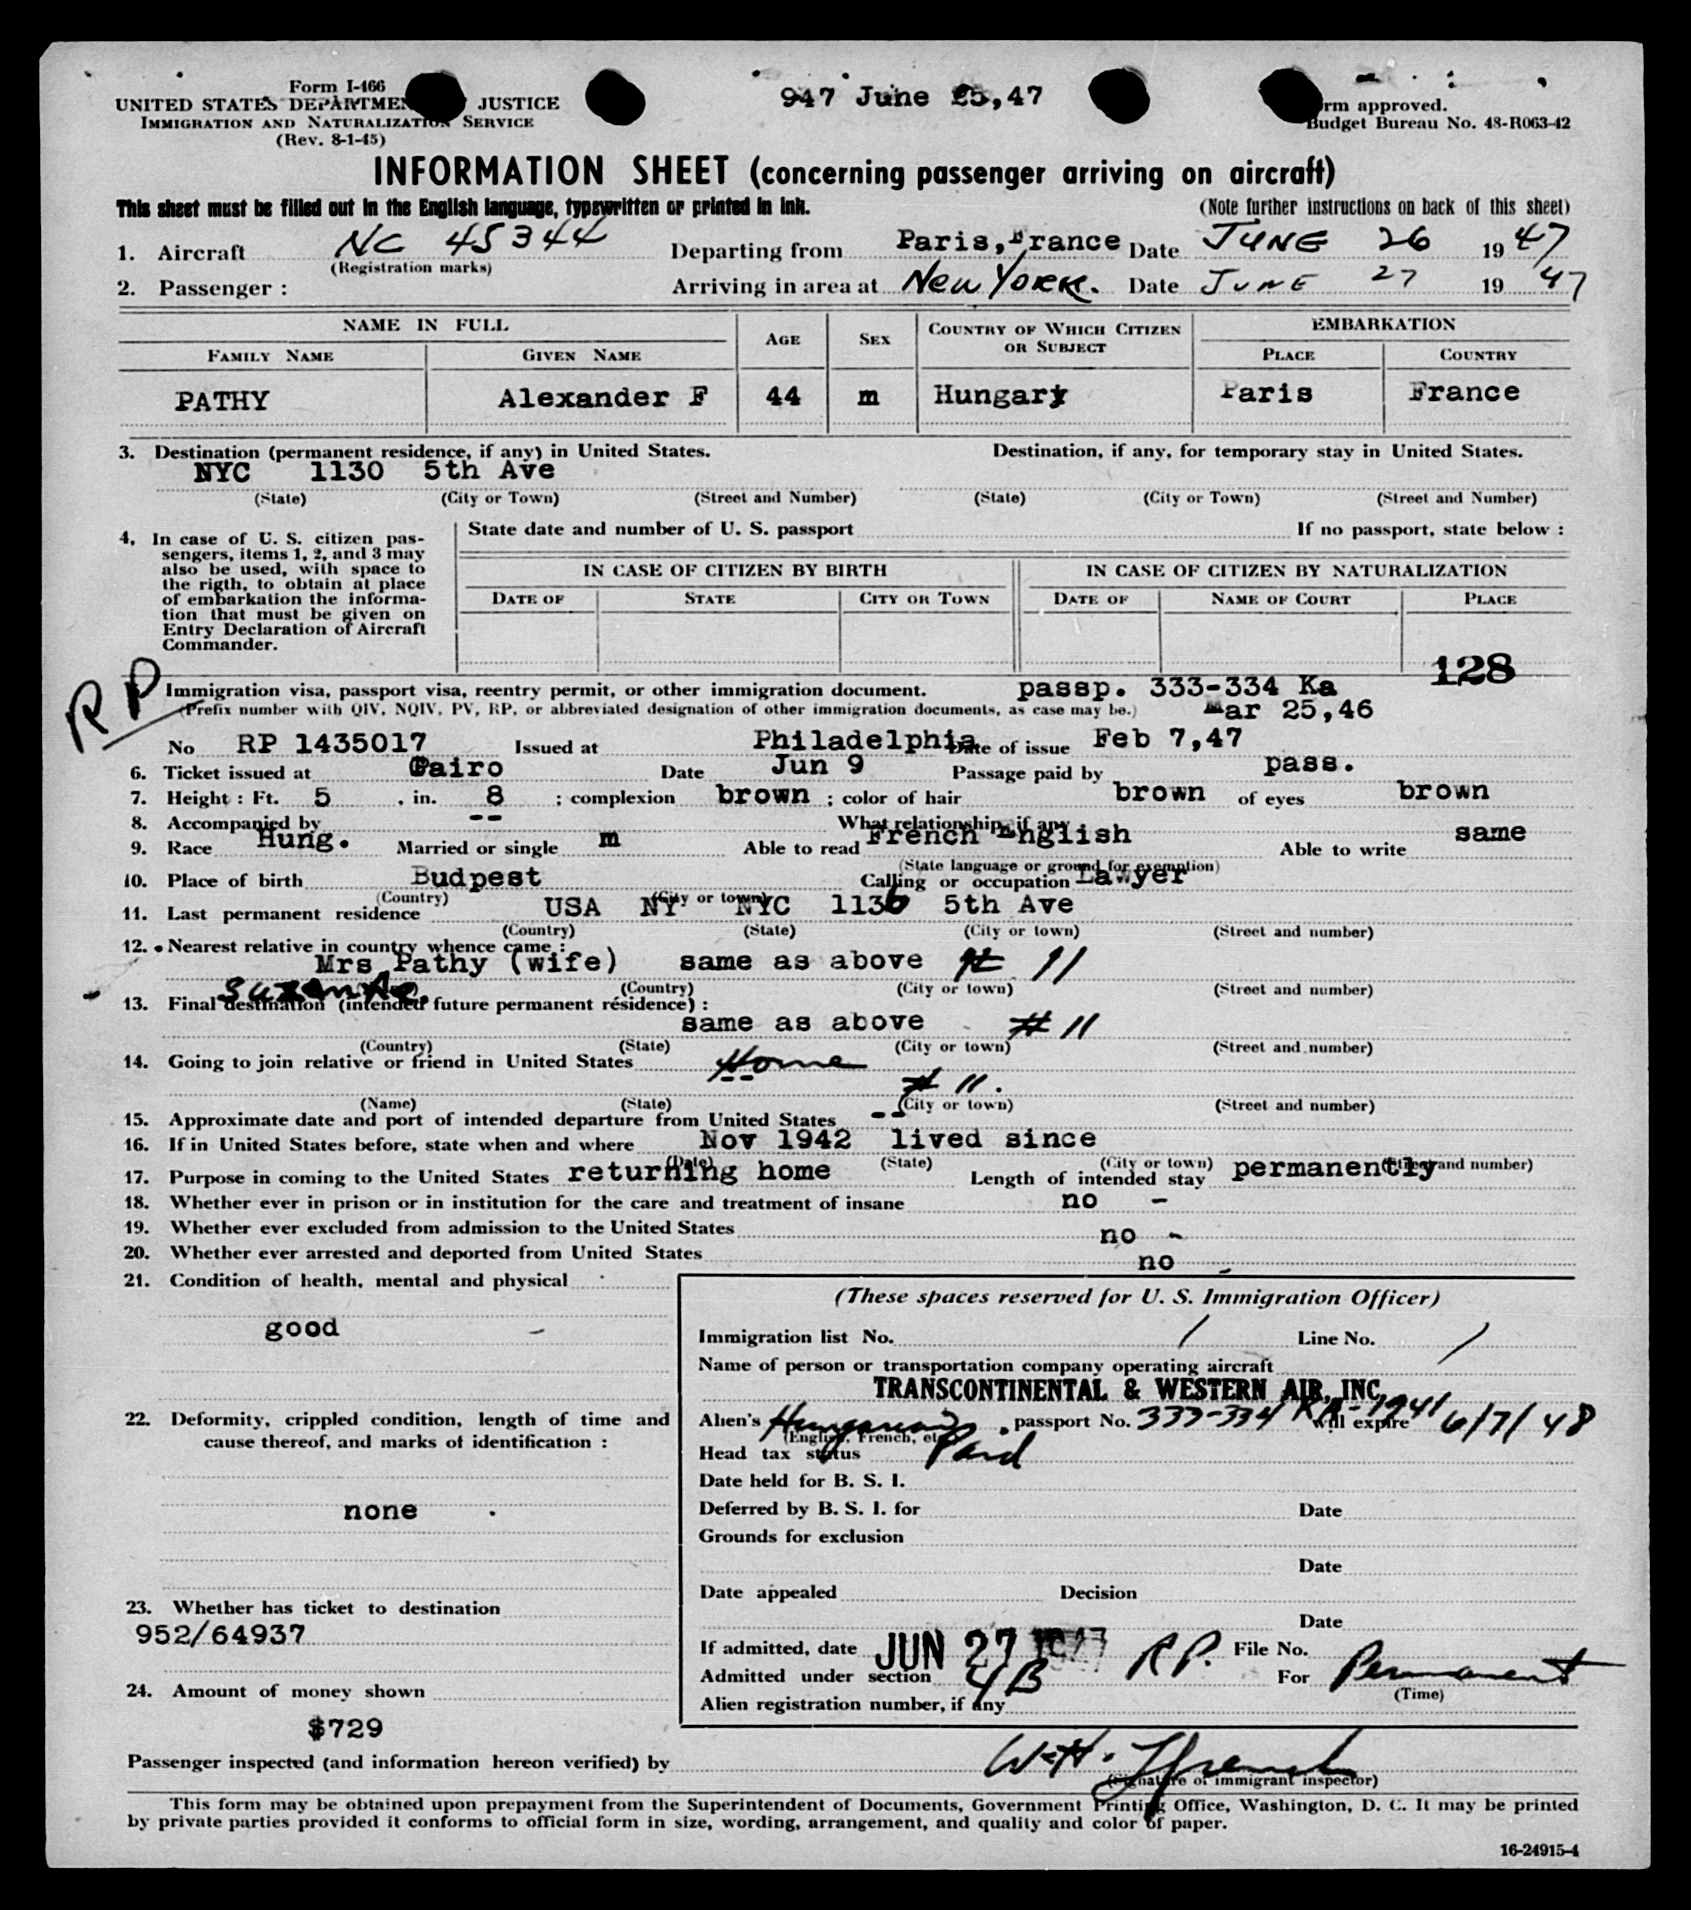 Form I-466
UNITED STATES DEPARTMENT JUSTICE
IMMIGRATION AND NATURALIZATION SERVICE
(Rev. 8-1-45)
947 June 25,47
rm approved.
Budget Bureau No. 48-R063-42
INFORMATION SHEET (concerning passenger arriving on aircraft)
This sheet must be filled out in the English language, typewritten or printed in ink.
(Note further instructions on back of this sheet)
1. Aircraft NC 45344 Departing from Paris, France Date JUNE 26 1947
(Registration marks)
2. Passenger : Arriving in area at New York. Date JUNE 27 1947
NAME IN FULL AGE SEX COUNTRY OF WHICH CITIZEN OR SUBJECT EMBARKATION
FAMILY NAME GIVEN NAME PLACE COUNTRY
PATHY Alexander F 44 m Hungary Paris France
3. Destination (permanent residence, if any) in United States. Destination, if any, for temporary stay in United States.
NYC 1130 5th Ave
(State) (City or Town) (Street and Number) (State) (City or Town) (Street and Number)
4. In case of U. S. citizen pas-
sengers, items 1, 2, and 3 may
also be used, with space to
the rigth, to obtain at place
of embarkation the informa-
tion that must be given on
Entry Declaration of Aircraft
Commander.
State date and number of U. S. passport If no passport, state below :
IN CASE OF CITIZEN BY BIRTH IN CASE OF CITIZEN BY NATURALIZATION
DATE OF STATE CITY OR TOWN DATE OF NAME OF COURT PLACE
128
RP
Immigration visa, passport visa, reentry permit, or other immigration document. passp. 333-334 Ka
(Prefix number with QIV, NQIV, PV, RP, or abbreviated designation of other immigration documents, as case may be.) Mar 25,46
No RP 1435017 Issued at Philadelphia Date of issue Feb 7,47
6. Ticket issued at Cairo Date Jun 9 Passage paid by pass.
7. Height : Ft. 5 , in. 8 ; complexion brown ; color of hair brown of eyes brown
8. Accompanied by -- What relationship, if any
9. Race Hung. Married or single m Able to read French English Able to write same
(State language or ground for exemption)
10. Place of birth Budpest Calling or occupation Lawyer
(Country) (City or town)
11. Last permanent residence USA NY NYC 1130 5th Ave
(Country) (State) (City or town) (Street and number)
12. Nearest relative in country whence came :
Mrs Pathy (wife) same as above # 11
(Country) (City or town) (Street and number)
13. Final destination (intended future permanent résidence) :
same as above # 11
(Country) (State) (City or town) (Street and number)
14. Going to join relative or friend in United States Home
-- # 11.
(Name) (State) (City or town) (Street and number)
15. Approximate date and port of intended departure from United States --
16. If in United States before, state when and where Nov 1942 lived since
(Date) (State) (City or town) (Street and number)
17. Purpose in coming to the United States returning home Length of intended stay permanently
18. Whether ever in prison or in institution for the care and treatment of insane no -
19. Whether ever excluded from admission to the United States no -
20. Whether ever arrested and deported from United States no -
21. Condition of health, mental and physical
good -
22. Deformity, crippled condition, length of time and
cause thereof, and marks of identification :
none
23. Whether has ticket to destination
952/64937
24. Amount of money shown
$729
(These spaces reserved for U. S. Immigration Officer)
Immigration list No. / Line No. /
Name of person or transportation company operating aircraft
TRANSCONTINENTAL & WESTERN AIR, INC.
Alien's Hungarian passport No. 333-334 KA-1941 will expire 6/7/48
(English, French, etc.)
Head tax status Paid
Date held for B. S. I.
Deferred by B. S. I. for Date
Grounds for exclusion
Date
Date appealed Decision
Date
If admitted, date JUN 27 1947 RP. File No.
Admitted under section 4B For Permanent
(Time)
Alien registration number, if any
Passenger inspected (and information hereon verified) by
(Signature of immigrant inspector)
This form may be obtained upon prepayment from the Superintendent of Documents, Government Printing Office, Washington, D. C. It may be printed
by private parties provided it conforms to official form in size, wording, arrangement, and quality and color of paper.
16-24915-4